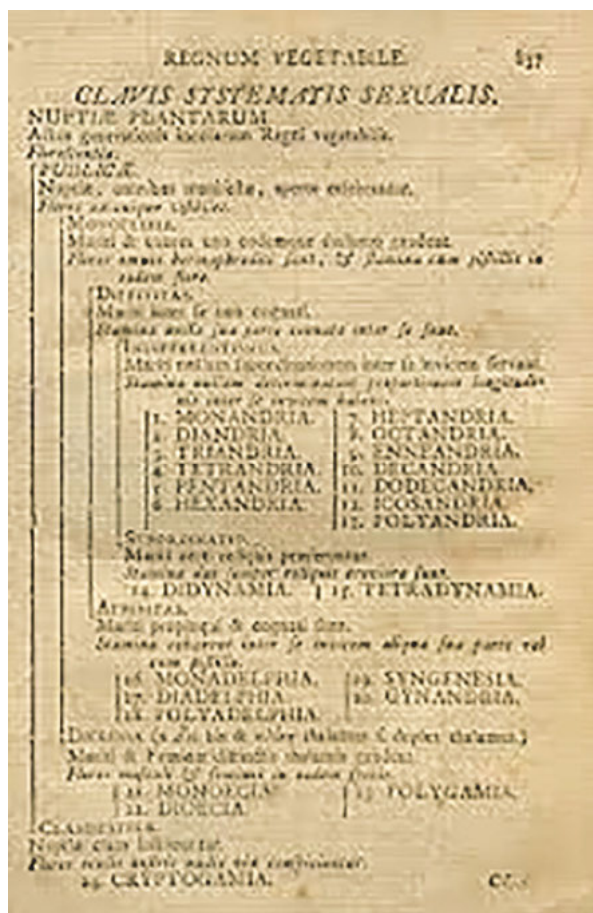 REGNUM VEGETABILE. 837
CLAVIS SYSTEMATIS SEXUALIS.
NUPTIÆ PLANTARUM
Actus generationis incolarum Regni vegetabilis.
Florescentia.
PUBLICÆ.
Nuptiæ, omnibus manifestæ, aperte celebrantur.
Flores unicuique visibiles.
MONOCLINIA.
Mariti & uxores uno eodemque thalamo gaudent.
Flores omnes hermaphroditi sunt, & stamina cum pistillis in
eodem flore.
DIFFINITAS.
Mariti inter se non cognati.
Stamina nulla sua parte connata inter se sunt.
INDIFFERENTISMUS.
Mariti nullam subordinationem inter se invicem servant.
Stamina nullam determinatam proportionem longitudi-
nis inter se invicem habent.
1. MONANDRIA. 7. HEPTANDRIA.
2. DIANDRIA. 8. OCTANDRIA.
3. TRIANDRIA. 9. ENNEANDRIA.
4. TETRANDRIA. 10. DECANDRIA.
5. PENTANDRIA. 11. DODECANDRIA.
6. HEXANDRIA. 12. ICOSANDRIA.
13. POLYANDRIA.
SUBORDINATIO.
Mariti certi reliquis præferuntur.
Stamina duo semper reliquis breviora sunt.
14. DIDYNAMIA. 15. TETRADYNAMIA.
AFFINITAS.
Mariti propinqui & cognati sunt.
Stamina cohærent inter se invicem aliqua sua parte vel
cum pistillo.
16. MONADELPHIA. 19. SYNGENESIA.
17. DIADELPHIA. 20. GYNANDRIA.
18. POLYADELPHIA.
DICLINIA (a dis bis & thalamus f. duplex thalamus.)
Mariti & Feminæ distinctis thalamis gaudent.
Flores masculi & feminei in eadem specie.
21. MONOECIA. 23. POLYGAMIA.
22. DIOECIA.
CLANDESTINÆ.
Nuptiæ clam instituuntur.
Flores oculis nostris nudis vix conspiciuntur.
24. CRYPTOGAMIA.